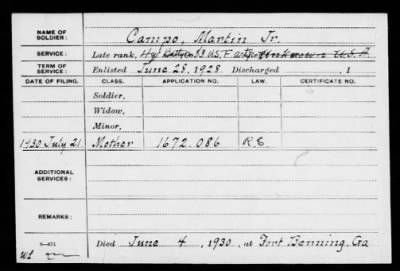 NAME OF SOLDIER: Campo, Martin Jr.
SERVICE: Late rank, Hq Battery 83 U.S. F Arty Unknown U.S.A.
TERM OF SERVICE: Enlisted June 28, 1928. Discharged , 1
DATE OF FILING. CLASS. APPLICATION NO. LAW. CERTIFICATE NO.
Soldier,
Widow,
Minor,
1930 July 21 Mother 1672.086 R.E.
ADDITIONAL SERVICES:
REMARKS:
Died June 4, 1930, at Fort Benning, Ga